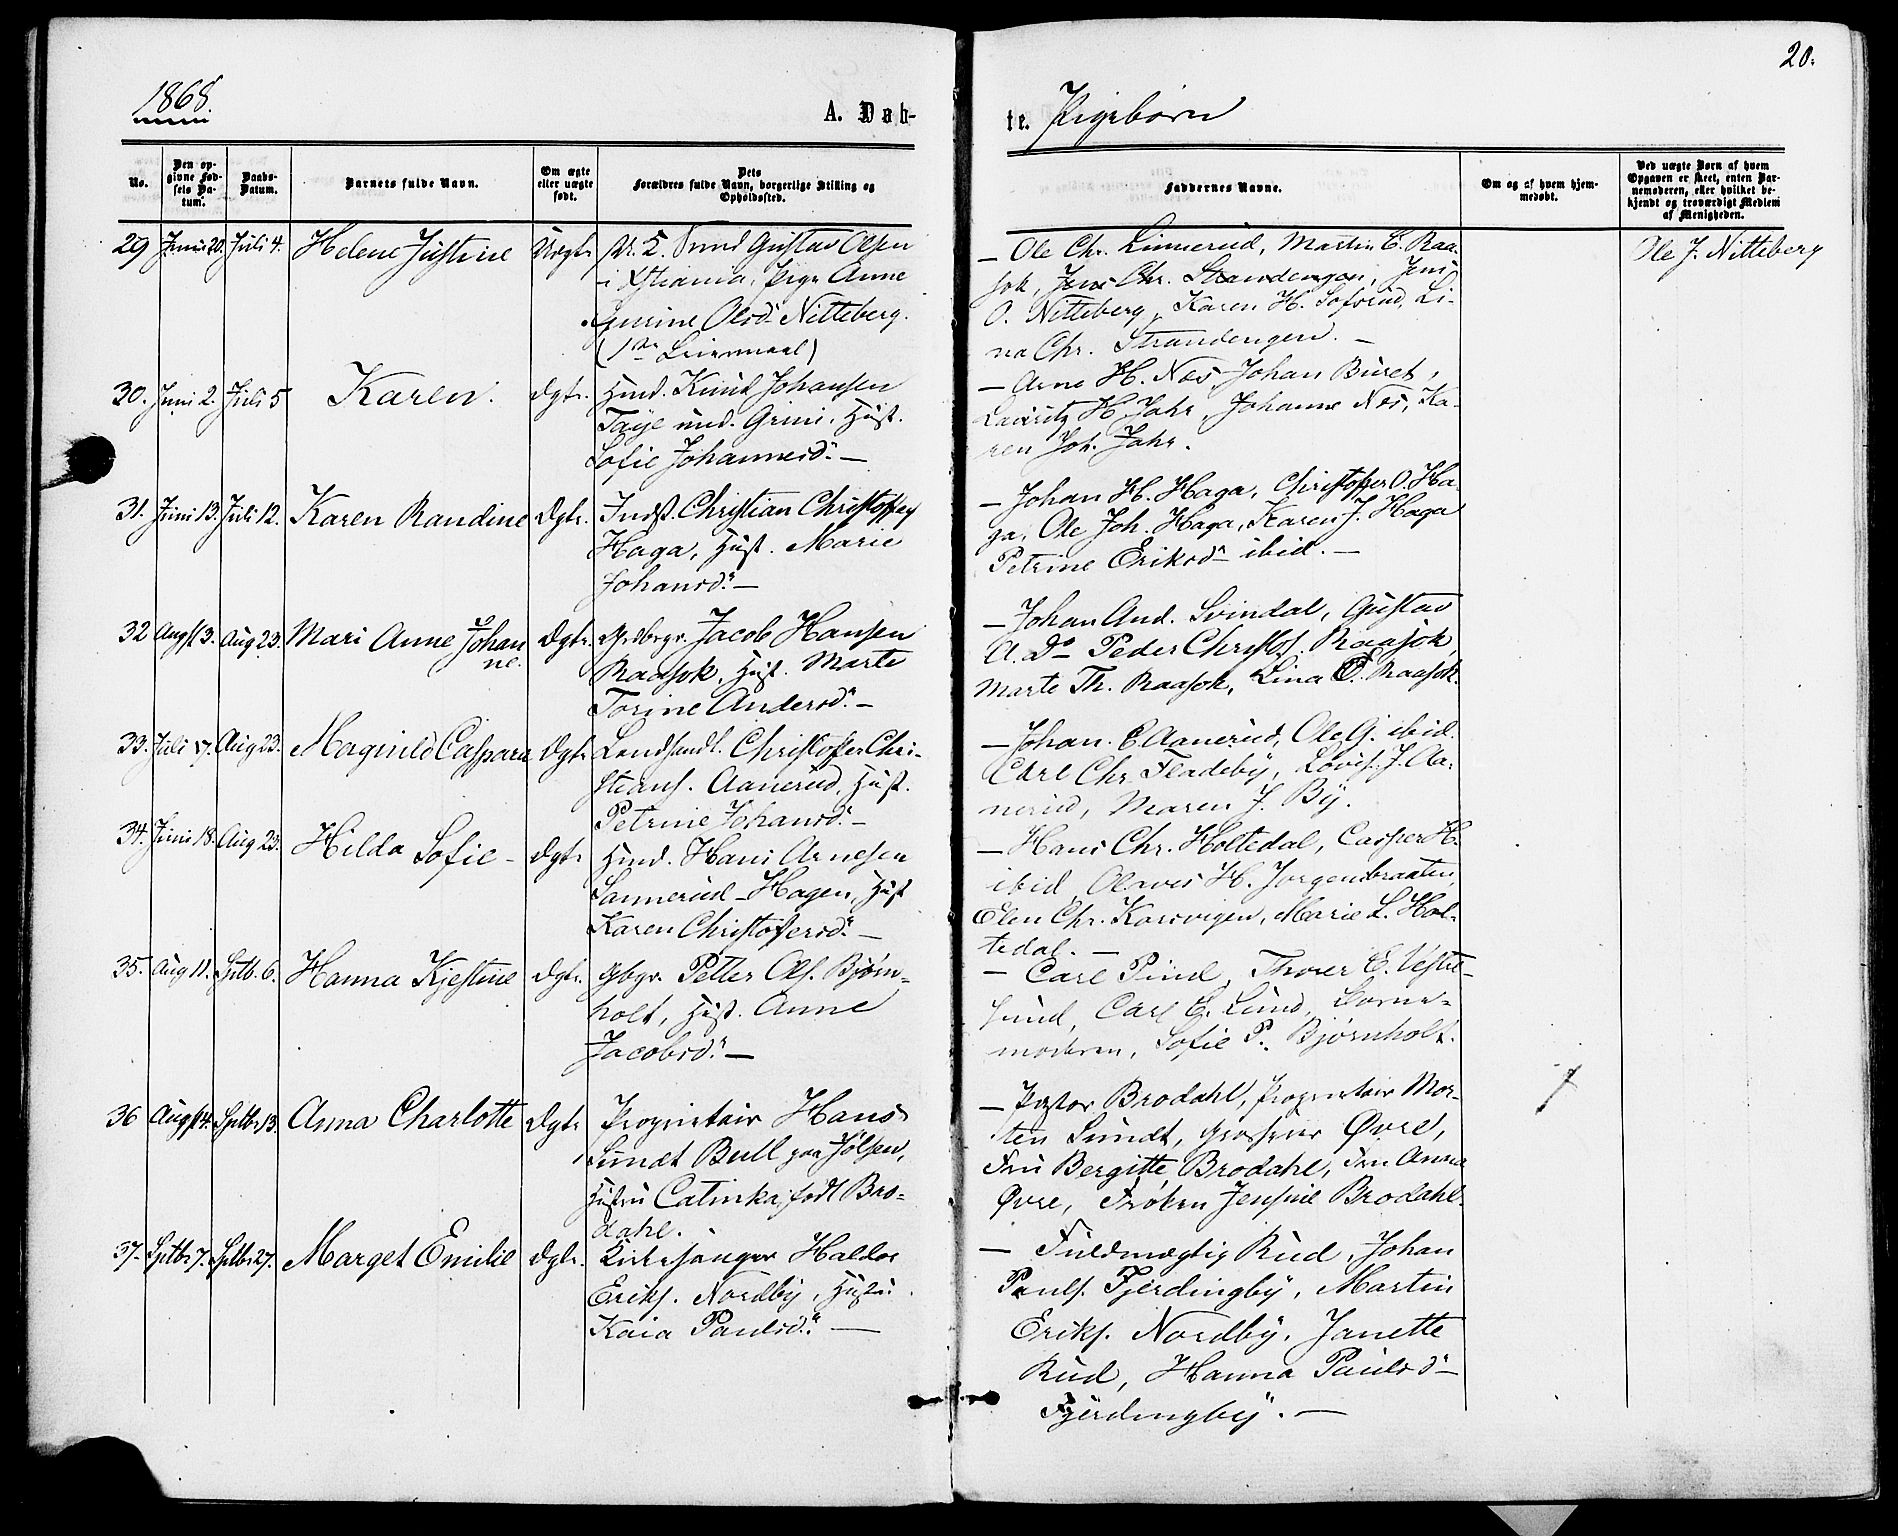 20.
1868.
A. Døb-
te. Pigebørn
No.
Den op-
givne Fød-
sels Da-
tum.
Daabs-
Datum.
Barnets fulde Navn.
Om ægte
eller uægte
født.
Dets
Forældres fulde Navn, borgerlige Stilling og
Opholdssted.
Faddernes Navne.
Om og af hvem hjem-
medøbt.
Ved uægte Børn af hvem
Opgaven er skeet, enten Bar-
nemoderen, eller hvilket be-
kjendt og troværdigt Medlem
af Menigheden.
29 Juni 20. Juli 4. Helene Justine Uægte Gustav Olsen
i Xtiania, Pige Anne
Gurine Olsdr. Nitteberg.
(1ste Leiermaal)
– Ole Chr. Linnerud, Martin E. Raa-
sok, Jens Chr. Strandengen, Jens
O. Nitteberg, Karen H. Sofsrud, Li-
na Chr. Strandengen. –
Ole J. Nitteberg
30. Juni 2. Juli 5 Karen. Ægte. Hmd. Knud Johansen
Taye und. Grini, Hust.
Sofie Johannesdr. –
– Arne H. Næs, Johan Buret,
Lauritz H Jahr, Johanne Næs, Ka-
ren Joh. Jahr.
31. Juni 13. Juli 12. Karen Randine Ægte. Indst. Christian Christoffers
Haga, Hust. Marie
Johansdr. –
– Johan H. Haga, Christoffer O. Ha-
ga, Ole Joh. Haga, Karen J. Haga
Petrine Eriksdr ibid. –
32 Augst 3. Aug 23. Mari Anne Johan
ne. Ægte. Grdbrgr. Jacob Hansen
Raasok, Hust. Marte
Torine Andersdr. –
– Johan And. Svindal, Gustav
A. Do Peder Christofs. Raasok,
Marte Th. Raasok, Lina E. Raasok.
33. Juli 17. Aug 23. Magnild Caspara Ægte Landhandl. Christoffer Chri-
stians. Aanerud, Hust.
Petrine Johansdr. –
– Johan. E. Aanerud, Ole G. ibid.
Carl Chr. Fladeby, Lovis. J. Aa-
nerud, Maren J. By.
34. Juni 18. Aug 23. Hilda Sofie – Ægte Hmd. Hans Arnesen
Sannerud-Hagen, Hust
Karen Christoffersdr. –
– Hans Chr. Holtedal, Casper H.
ibid, Olaves H. Jorgensbraaten,
Elen Chr. Korsvigen, Marie L. Hol-
tedal. –
35. Aug 11. Septb. 6. Hanna Kjestine Ægte. Gbgr. Petter Ols. Bjørn-
holt, Hust. Anne
Jacobsdr. –
– Carl Pind, Thorer E. Vestre-
sund, Carl E. Lund, Barne-
moderen, Sofie P. Bjørnholt.
36 Augst 4. Septbr 13. Anna Charlotte Ægte Proprietair Hans
Sundt Bull paa Jølsen,
Hustru Catinka, født Bro-
dahl.
– Pastor Brodahl, Proprietair Mor-
ten Sundt, Grosserer Øvre,
Fru Bergitte Brodahl, Fru Anna
Øvre, Frøken Jensine Brodahl.
37. Septbr 7. Septbr 27. Marget Emilie Ægte. Kirkesanger Haldor
Eriks. Nordby, Hustru
Kaia Paulsdr. –
– Fuldmægtig Rud, Johan
Pauls. Fjerdingby, Martin
Eriks. Nordby, Janette
Rud, Hanna Paulsdr –
Fjerdingby. –